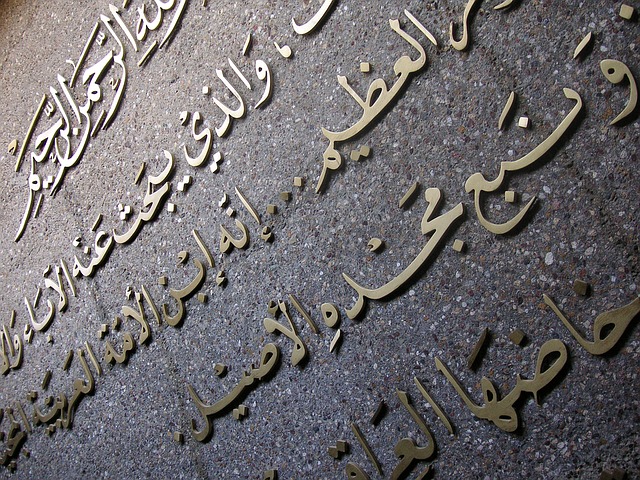 الله الرحمن الرحيم
والذي يبحث عنه الآباء
العظيم ... إنه ابن الأمة العربية
ونبع مجدهِ الأصيل
حاضنها العراق